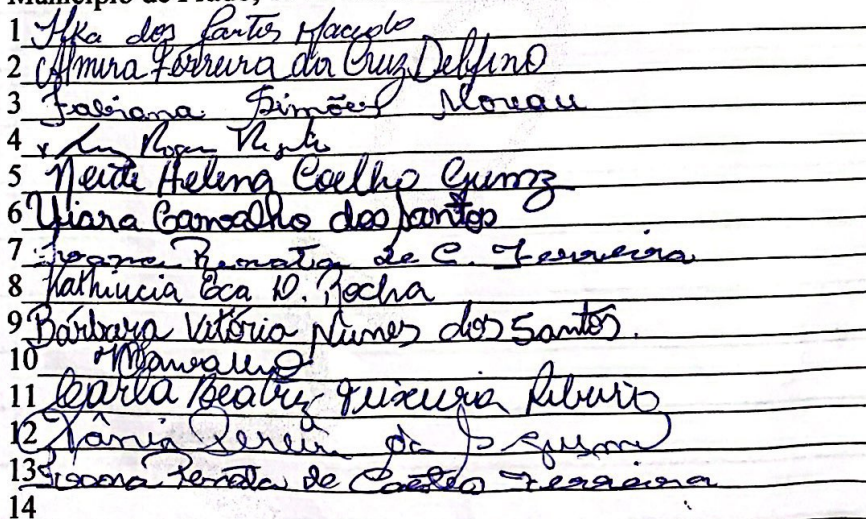 Município de Prado,
1 Ilka dos Santos Macedo
2 Almira Ferreira da Cruz Delfino
3 Fabiana Simões Moreau
4
5 Neide Helena Coelho Gumz
6 Yiara Carvalho dos Santos
7 Joana Renata de C. Ferreira
8 Kathiucia Eca D. Rocha
9 Bárbara Vitória Nunes dos Santos.
10
11 Carla Beatriz Teixeira Ribeiro
12 Tânia Pereira da
13 Renata de Castro Ferreira
14